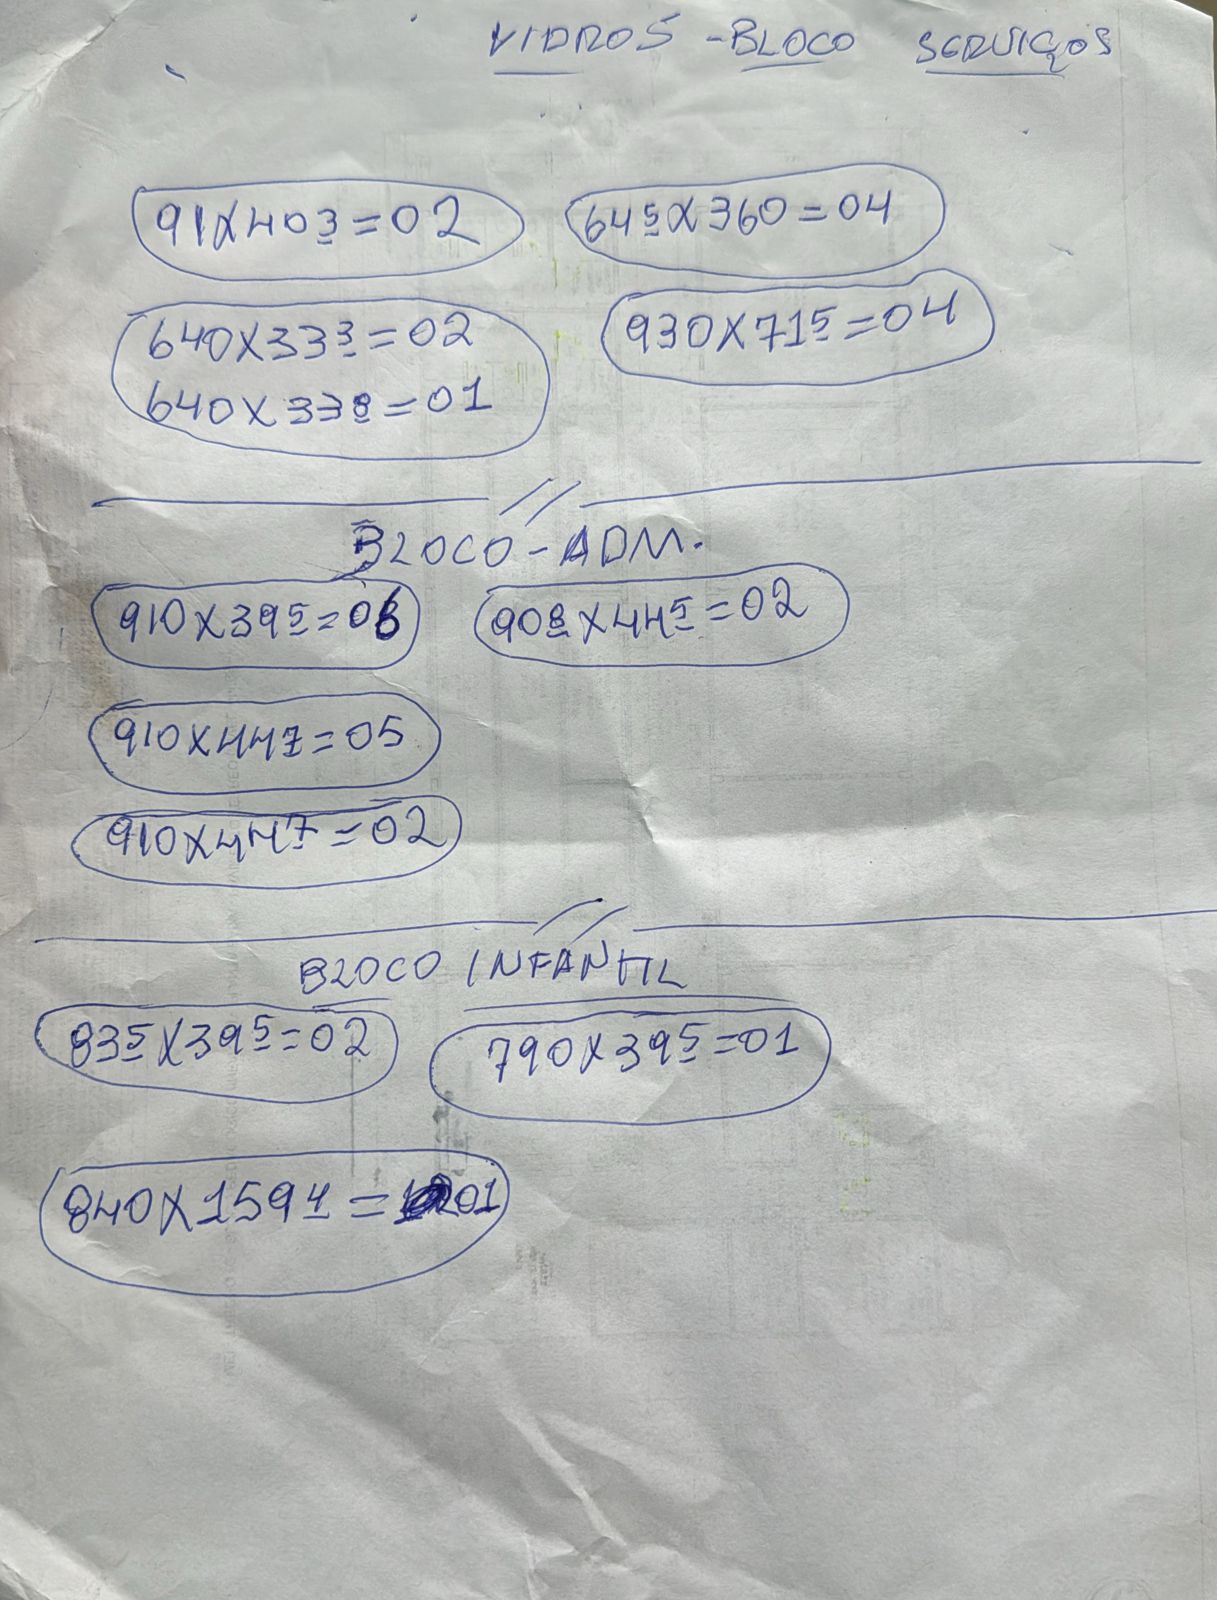 VIDROS - BLOCO SERVIÇOS
91X403=02 645X360=04
640X333=02 930X715=04
640X338=01
BLOCO - ADM.
910X395=06 908X445=02
910X447=05
910X447=02
BLOCO INFANTIL
835X395=02 790X395=01
840X1591=01